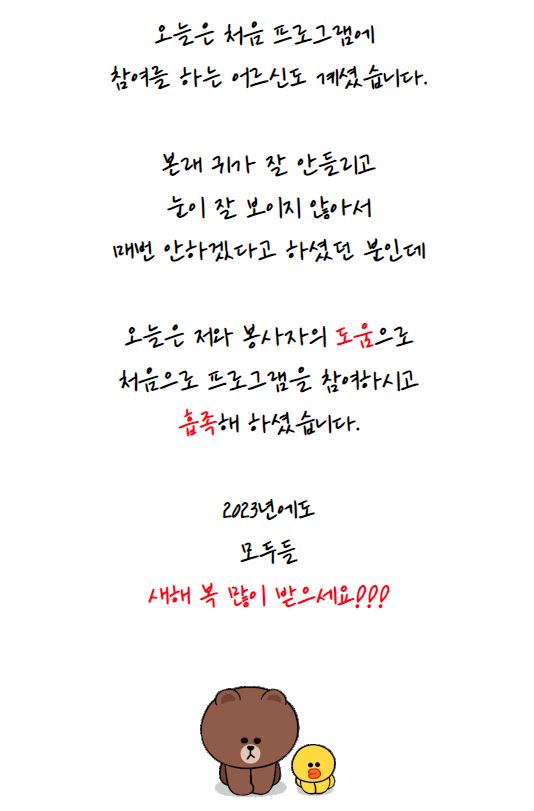 오늘은 처음 프로그램에
참여를 하는 어르신도 계셨습니다.
본래 귀가 잘 안들리고
눈이 잘 보이지 않아서
매번 안하겠다고 하셨던 분인데
오늘은 저와 봉사자의 도움으로
처음으로 프로그램을 참여하시고
흡족해 하셨습니다.
2023년에도
모두들
새해 복 많이 받으세요!!!